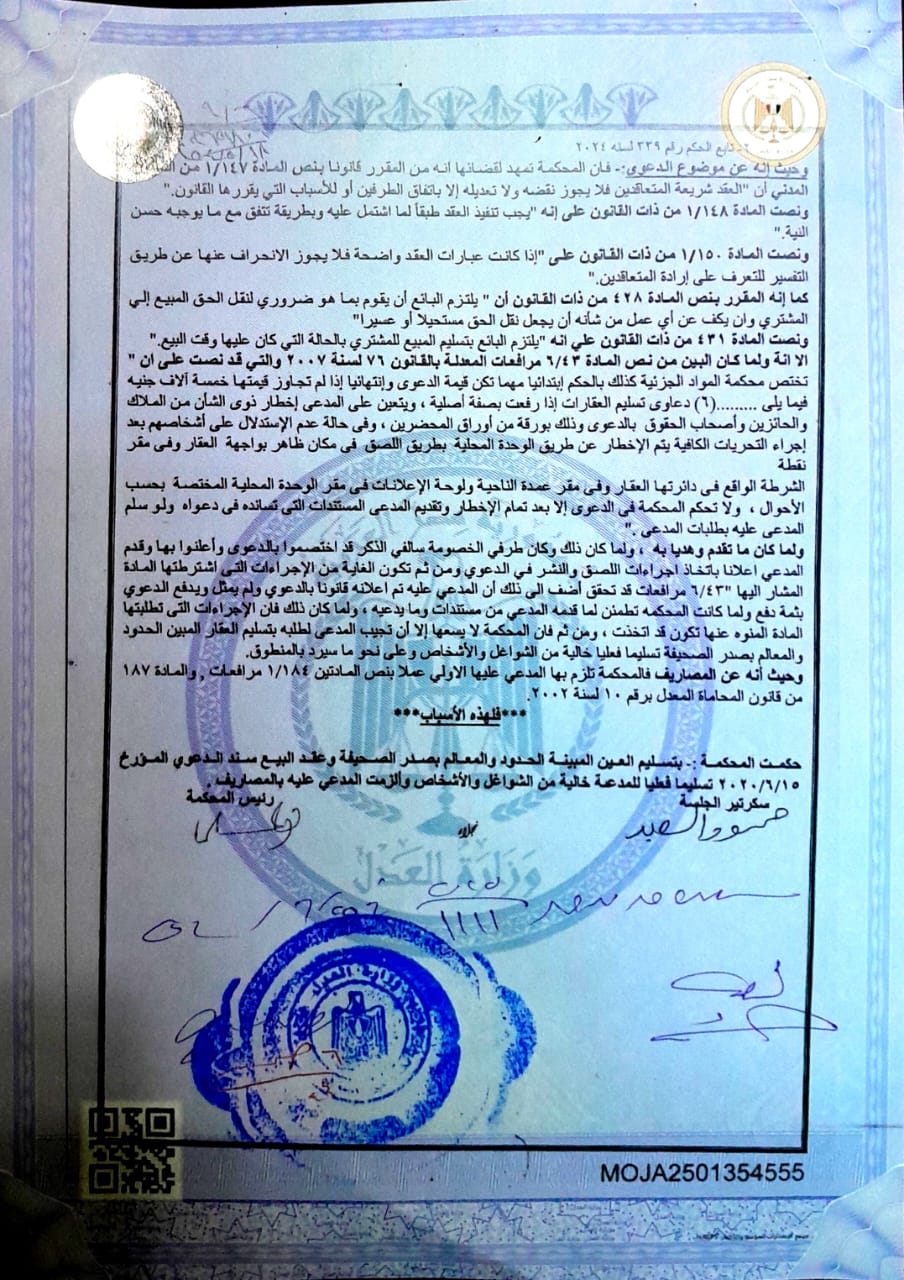 تابع الحكم رقم ٣٣٩ لسنه ٢٠٢٤
وحيث إنه عن موضوع الدعوى:- فان المحكمة تمهد لقضائها انه من المقرر قانونا بنص المادة ١/١٤٧ من
المدني أن "العقد شريعة المتعاقدين فلا يجوز نقضه ولا تعديله إلا باتفاق الطرفين أو للأسباب التي يقررها القانون."
ونصت المادة ١/١٤٨ من ذات القانون على إنه "يجب تنفيذ العقد طبقاً لما اشتمل عليه وبطريقة تتفق مع ما يوجبه حسن
النية."
ونصت المادة ١/١٥٠ من ذات القانون على "إذا كانت عبارات العقد واضحة فلا يجوز الانحراف عنها عن طريق
التفسير للتعرف على إرادة المتعاقدين."
كما إنه المقرر بنص المادة ٤٢٨ من ذات القانون أن " يلتزم البائع أن يقوم بما هو ضروري لنقل الحق المبيع إلي
المشتري وان يكف عن أي عمل من شأنه أن يجعل نقل الحق مستحيلا أو عسيرا"
ونصت المادة ٤٣١ من ذات القانون علي انه "يلتزم البائع بتسليم المبيع للمشتري بالحالة التي كان عليها وقت البيع."
الا انة ولما كان البين من نص المادة ٦/٤٣ مرافعات المعدلة بالقانون ٧٦ لسنة ٢٠٠٧ والتي قد نصت على ان "
تختص محكمة المواد الجزئية كذلك بالحكم إبتدائيا مهما تكن قيمة الدعوى وإنتهائيا إذا لم تجاوز قيمتها خمسة آلاف جنيه
فيما يلى .........(٦) دعاوى تسليم العقارات إذا رفعت بصفة أصلية ، ويتعين على المدعى إخطار ذوى الشأن من الملاك
والحائزين وأصحاب الحقوق بالدعوى وذلك بورقة من أوراق المحضرين ، وفى حالة عدم الإستدلال على أشخاصهم بعد
إجراء التحريات الكافية يتم الإخطار عن طريق الوحدة المحلية بطريق اللصق فى مكان ظاهر بواجهة العقار وفى مقر
نقطة
الشرطة الواقع فى دائرتها العقار وفى مقر عمدة الناحية ولوحة الإعلانات فى مقر الوحدة المحلية المختصة بحسب
الأحوال ، ولا تحكم المحكمة فى الدعوى إلا بعد تمام الإخطار وتقديم المدعى المستندات التى تسانده فى دعواه ولو سلم
المدعى عليه بطلبات المدعى ."
ولما كان ما تقدم وهديا به ، ولما كان ذلك وكان طرفي الخصومة سالفي الذكر قد اختصموا بالدعوى وأعلنوا بها وقدم
المدعي اعلانا باتخاذ اجراءات اللصق والنشر في الدعوي ومن ثم تكون الغاية من الإجراءات التى اشترطتها المادة
المشار اليها "٦/٤٣ مرافعات قد تحقق أضف الى ذلك أن المدعى عليه تم اعلانه قانونا بالدعوي ولم يمثل ويدفع الدعوي
بثمة دفع ولما كانت المحكمه تطمئن لما قدمه المدعي من مستندات وما يدعيه ، ولما كان ذلك فان الإجراءات التى تطلبتها
المادة المنوه عنها تكون قد اتخذت ، ومن ثم فان المحكمة لا يسعها إلا أن تجيب المدعى لطلبه بتسليم العقار المبين الحدود
والمعالم بصدر الصحيفة تسليما فعليا خالية من الشواغل والأشخاص وعلى نحو ما سيرد بالمنطوق.
وحيث أنه عن المصاريف فالمحكمة تلزم بها المدعي عليها الاولي عملا بنص المادتين ١/١٨٤ مرافعات , والمادة ١٨٧
من قانون المحاماة المعدل برقم ١٠ لسنة ٢٠٠٢.
***فلهذه الأسباب***
حكمت المحكمة :- بتسليم العين المبينة الحدود والمعالم بصدر الصحيفة وعقد البيع سند الدعوي المؤرخ
٢٠٢٠/٦/١٥ تسليما فعليا للمدعة خالية من الشواغل والأشخاص وألزمت المدعي عليه بالمصاريف.
سكرتير الجلسة
رئيس المحكمة
وزارة العدل
MOJA2501354555